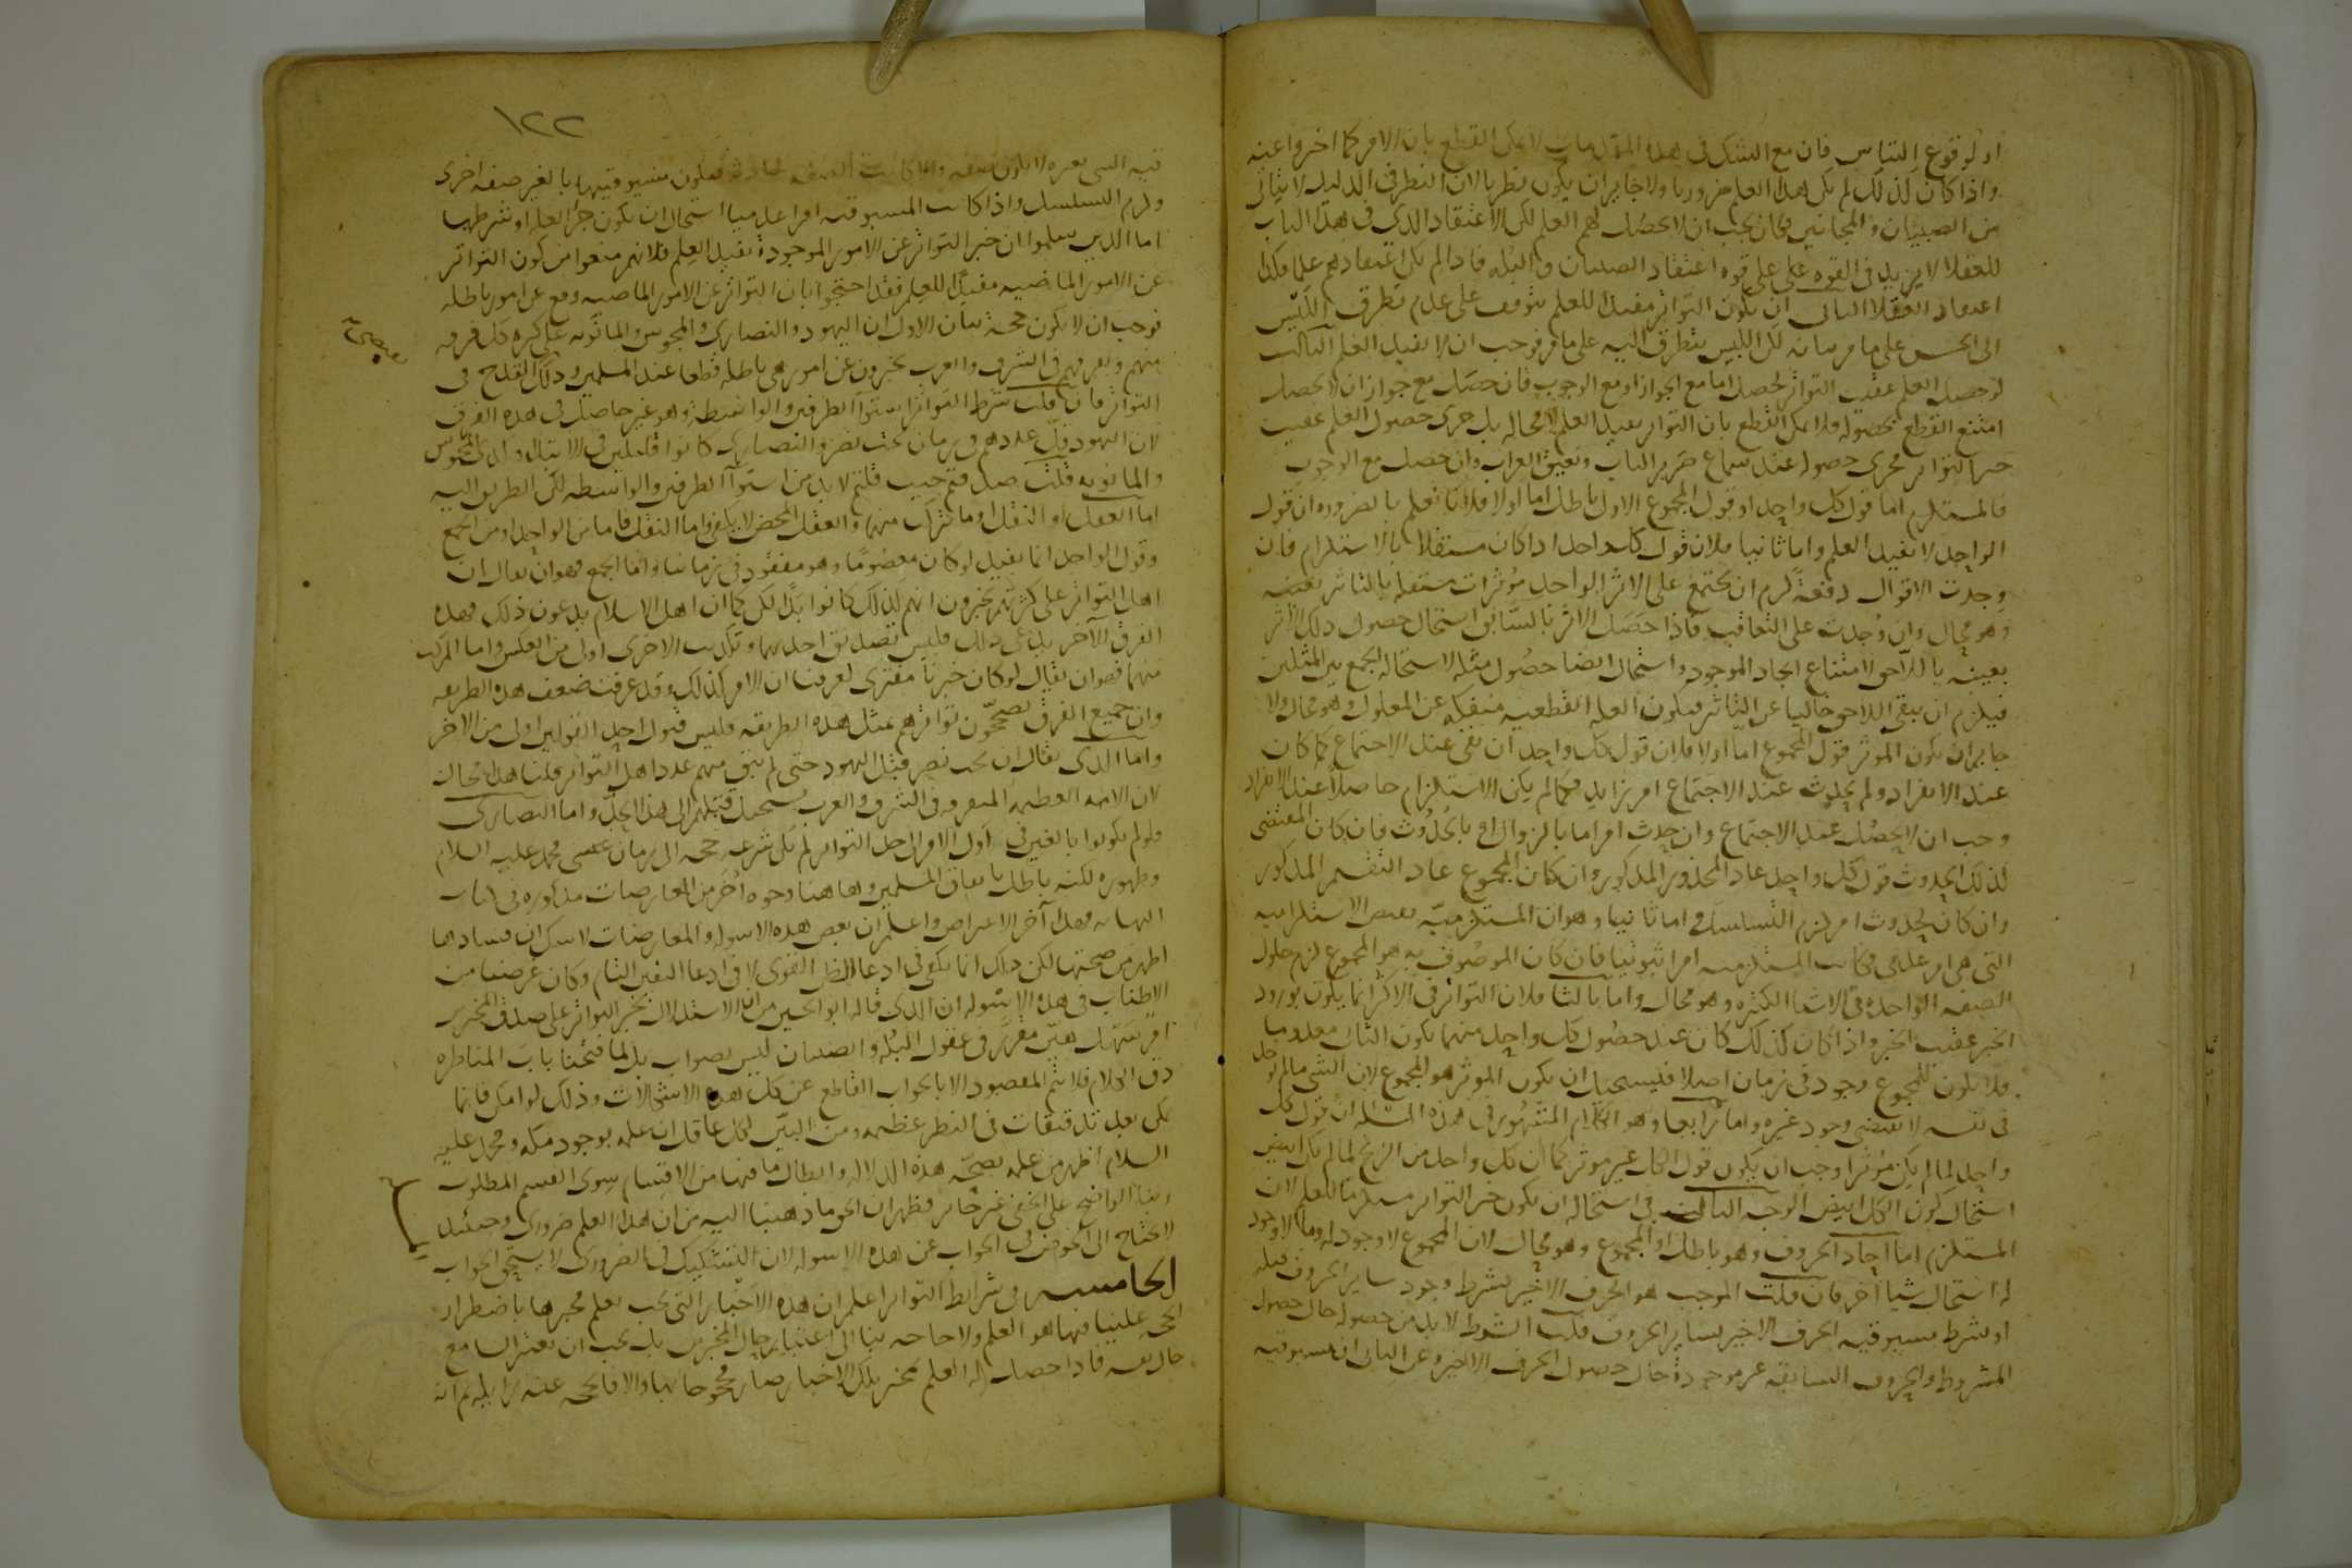 او لوقوع التباس فان مع الشك في هذه المقدمات لا يمكن القطع بان الامر كما اخبروا عنه
واذا كان كذلك لم يكن هذا العلم ضروريا ولا جايز ان يكون نظريا لان النظر في الدليل لا يتاتى
من الصبيان والمجانين فكان يجب ان لا يحصل لهم العلم لكن الاعتقاد الذي في هذا الباب
للعقلا لا يزيد في القوة على قوة اعتقاد الصبيان والبله فاذا لم يكن اعتقادهم علما فكذا
اعتقاد العقلا الثاني ان كون التواتر مفيدا للعلم يتوقف على عدم تطرق اللبس
الى الحس على ما مر بيانه لكن اللبس يتطرق اليه على ما مر فوجب ان لا يفيد العلم الثالث
لو حصل العلم عقيب التواتر لحصل اما مع الجواز او مع الوجوب فان حصل مع جواز ان لا يحصل
امتنع القطع بحصوله فلا يمكن القطع بان التواتر يفيد العلم لا محالة بل جرى حصول العلم عقيب
خبر التواتر مجرى حصوله عند سماع صرير الباب ونعيق الغراب وان حصل مع الوجوب
فالمستلزم اما قول كل واحد او قول المجموع الاول باطل اما اولا فلانا نعلم بالضرورة ان قول
الواحد لا يفيد العلم واما ثانيا فلان قول كل واحد اذا كان مستقلا بالاستلزام فان
وجدت الاقوال دفعة لزم ان يجتمع على الاثر الواحد مؤثرات مستقلة بالتاثير بعينه
وهو محال وان وجدت على التعاقب فاذا حصل الاثر بالسابق استحال حصول ذلك الاثر
بعينه باللاحق لامتناع ايجاد الموجود واستحال ايضا حصول مثله لاستحالة الجمع بين المثلين
فيلزم ان يبقى اللاحق خاليا عن التاثير فيكون العلة القطعية منفكة عن المعلول وهو محال ولا
جايز ان يكون المؤثر قول المجموع اما اولا فلان قول كل واحد ان بقي عند الاجتماع كما كان
عند الانفراد ولم يحدث عند الاجتماع امر زايد فكما لم يكن الاستلزام حاصلا عند الانفراد
وجب ان لا يحصل عند الاجتماع وان حدث امر اما بالزوال او بالحدوث فان كان المقتضي
لذلك الحدوث قول كل واحد عاد المحذور المذكور وان كان المجموع عاد التقسيم المذكور
وان كان لحدوث امر لزم التسلسل واما ثانيا وهو ان المستلزمية نقيض الاستلزامية
التي هي امر عدمي فكانت المستلزمية امرا ثبوتيا فان كان الموصوف به هو المجموع لزم حلول
الصفة الواحدة في الاشيا الكثيرة وهو محال واما ثالثا فلان التواتر في الاكثر انما يكون بورود
الخبر عقيب الخبر واذا كان كذلك كان عند حصول كل واحد منهما يكون الثاني معدوما
فلا يكون للمجموع وجود في زمان اصلا فيستحيل ان يكون المؤثر هو المجموع لان الشي ما لم يوجد
في نفسه لا يقتضي وجود غيره واما رابعا وهو الكلام المشهور في هذه المسئلة ان قول كل
واحد لما لم يكن مؤثرا وجب ان يكون قول الكل غير مؤثر كما ان كل واحد من الزنج لما لم يكن ابيض
استحال كون الكل ابيض الوجه الثالث في استحالة ان يكون خبر التواتر مستلزما للعلم لان
المستلزم اما احاد الحروف وهو باطل او المجموع وهو محال لان المجموع لا وجود له وما لا وجود
له استحال شيا اخر فان قلت الموجب هو الحرف الاخير بشرط وجود ساير الحروف قبله
او بشرط مسبوقية الحرف الاخير بساير الحروف قلت الشرط لا بد من حصوله حال حصول
المشروط والحروف السابقة غير موجودة حال حصول الحرف الاخير وعن الثاني ان مسبوقية
١٢٢
ولزم التسلسل واذا كانت المسبوقية امرا عدميا استحال ان يكون جزا العلة او شرطها
اما الذين سلموا ان خبر التواتر عن الامور الموجودة يفيد العلم فلانهم منعوا من كون التواتر
عن الامور الماضية مفيدا للعلم فقد احتجوا بان التواتر عن الامور الماضية وقع عن امور باطلة
فوجب ان لا يكون حجة بيان الاول ان اليهود والنصارى والمجوس والمانوية على كثرة كل فرقة
منهم وتفرقهم في الشرق والغرب يخبرون عن امور هي باطلة قطعا عند المسلمين وذلك القدح في
التواتر فان قلت شرط التواتر استوا الطرفين والواسطة وهو غير حاصل في هذه الفرق
لان اليهود قل عددهم في زمان بخت نصر والنصارى كانوا قليلين في الابتدا وكذا المجوس
والمانوية قلت هل قلتم لا بد من استوا الطرفين والواسطة لكن الطريق اليه
اما العقل او النقل او ما تركب منهما والعقل المحض لا يكفي واما النقل فاما من الواحد او من الجمع
وقول الواحد انما يفيد لو كان معصوما وهو مفقود في زماننا واما الجمع فهو ان يقال ان
اهل التواتر على كثرتهم يخبرون انهم كذلك كانوا ابدا لكن كما ان اهل الاسلام يدعون ذلك فهذه
الفرق الاخر يدعي ذلك فليس تصديق احديهما وتكذيب الاخرى اولى من العكس واما المركب
منهما فهو ان يقال لو كان خبرنا مفترى لعرفنا ان الامر كذلك وقد عرفت ضعف هذه الطريقة
وان جميع الفرق يصححون تواترهم بمثل هذه الطريقة فليس قبول احد القولين اولى من الاخر
واما الذي يقال ان بخت نصر قتل اليهود حتى لم يبق منهم عدد اهل التواتر قلنا هذا محال
لان الامة العظيمة المتفرقة في الشرق والغرب يستحيل قتلهم الى هذا الحد واما النصارى
فلو لم يكونوا بالغين في اول الامر الى حد التواتر لم يكن شرعه حجة الى زمان محمد عليه السلام
وظهوره لكنه باطل باتفاق المسلمين وهاهنا وجوه اخر من المعارضات مذكورة في كتاب
النهاية فهذا آخر الاعتراض واعلم ان بعض هذه الاسولة والمعارضات لا شك ان فسادها
اظهر من صحتها لكن ذلك انما يكفي في ادعا الظن القوي لا في ادعا اليقين التام وكان غرضنا من
الاطناب في هذه الاسولة ان الذي قاله ابو الحسين من ان الاستدلال بخبر التواتر على صدق المخبرين
امر سهل هين مقرر في عقول البله والصبيان ليس بصواب بل لما فتحنا باب المناظرة
دق الكلام فلا يتم المقصود الا بالجواب القاطع عن كل هذه الاشكالات وذلك لو امكن فانما
يمكن بعد تدقيقات في النظر عظيمة ومن البين لكل عاقل ان علمه بوجود مكة ومحمد عليه
السلام اظهر من علمه بصحة هذه الدلالة وابطال ما فيها من الاقسام سوى القسم المطلوب
وبنا الواضح على الخفي غير جائز فظهر ان الحق ما ذهبنا اليه من ان هذا العلم ضروري وحينئذ
لا نحتاج الى الخوض في الجواب عن هذه الاسولة لان التشكيك في الضروري لا يستحق الجواب
الخامسة في شرائط التواتر اعلم ان هذه الاخبار التي يجب نعلم مخبرها باضطرار
الحجة علينا فيها هو العلم ولا حاجة بنا الى اعتبار حال المخبرين بل يجب ان يعتبر السامع
حال نفسه فاذا حصل له العلم بمخبر تلك الاخبار صار محجوجا بها والا فالحجة عنه زايلة ثم انه